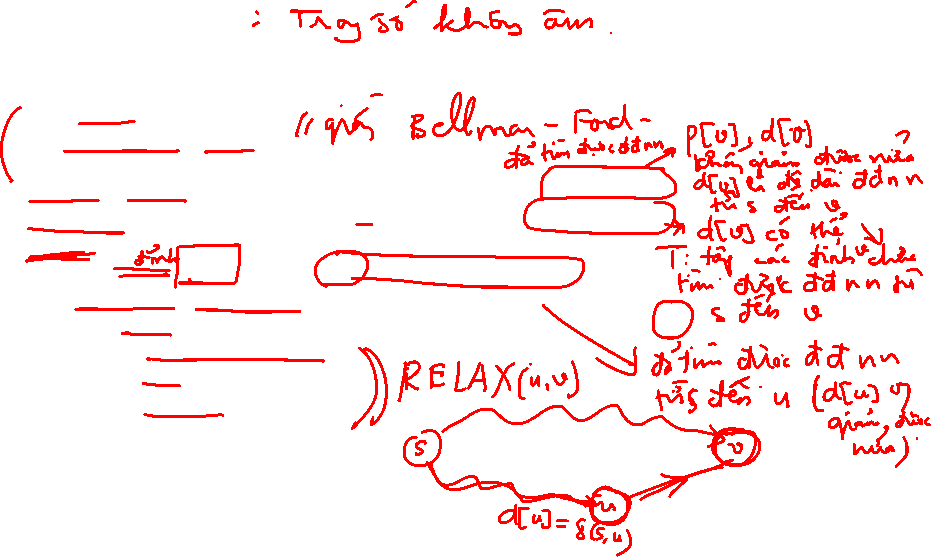 : Trọng số không âm.
// giống Bellman - Ford -
đã tìm được đđnn
p[v], d[v]
không giảm được nữa
d[v] là độ dài đđnn
từ s đến v
d[v] có thể ↘
T: tập các đỉnh v chưa
tìm được đđnn từ
s đến v
đỉnh
RELAX(u,v)
đã tìm được đđnn
từ s đến u (d[u] 0
giảm được
nữa)
s
v
u
d[u] = δ(s,u)